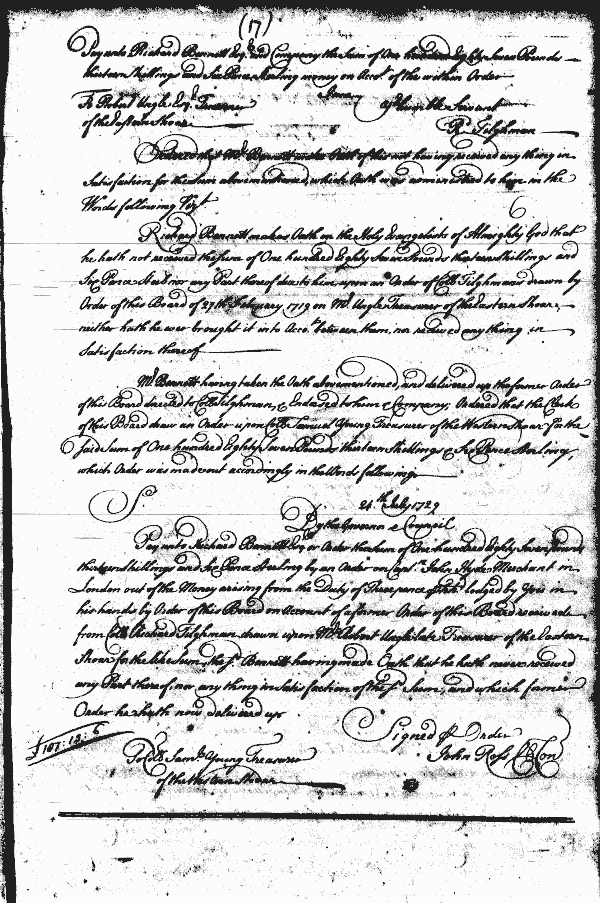 (17)
Pay unto Richard Bennett Esq.r and Company the Sum of One hundred Eighty Seven Pounds
thirteen Shillings and Six Pence Sterling money on Acco.t of the within Order
To Robert Ungle Esq.r Treasurer
humble Servant
of the Eastern Shoar
R.d Tilghman
Ordered that M.r Bennett make Oath of his not having received any thing in
Satisfaction for the Sum abovementioned, which Oath was administred to him in the
Words following Viz.t
Richard Bennett makes Oath on the Holy Evangelists of Almighty God that
he hath not received the Sum of One hundred Eighty Seven Pounds thirteen Shillings and
Six Pence Sterl nor any Part thereof due to him upon an Order of Coll.o Tilghmans drawn by
Order of this Board of 27.th February 1719 on M.r Ungle Treasurer of the Eastern Shoar,
neither hath he ever brought it into Acco.t between them, nor received any thing in
Satisfaction thereof
M.r Bennett having taken the Oath abovementioned, and delivered up the former Order
of this Board directed to Coll.o Tilghman, & Endorsed to him & Company, Ordered that the Clerk
of this Board draw an Order upon Coll.o Samuel Young Treasurer of the Western Shoar for the
said Sum of One hundred Eighty Seven Pounds thirteen Shillings & Six Pence Sterling,
which Order was made out accordingly in the Words following
S.r
24.th July 1729
By the Governor & Council
Pay unto Richard Bennett Esq.r or Order the Sum of One hundred Eighty Seven Pounds
thirteen Shillings and Six Pence Sterling by an Order on Cap.t John Hyde Merchant in
London out of the Money arising from the Duty of Three pence lodged by You in
his hands by Order of this Board on Account of a former Order of this Board received
from Coll.o Richard Tilghman drawn upon M.r Robert Ungle late Treasurer of the Eastern
Shoar for the like Sum, the s.d Bennett having made Oath that he hath never received
any Part thereof, nor any thing in Satisfaction of the s.d Sum, and which former
Order he hath now delivered up
Signed P Order
£187: 13: 6
To Coll.o Sam.l Young Treasurer
John Ross Cl Con
of the Western Shoar